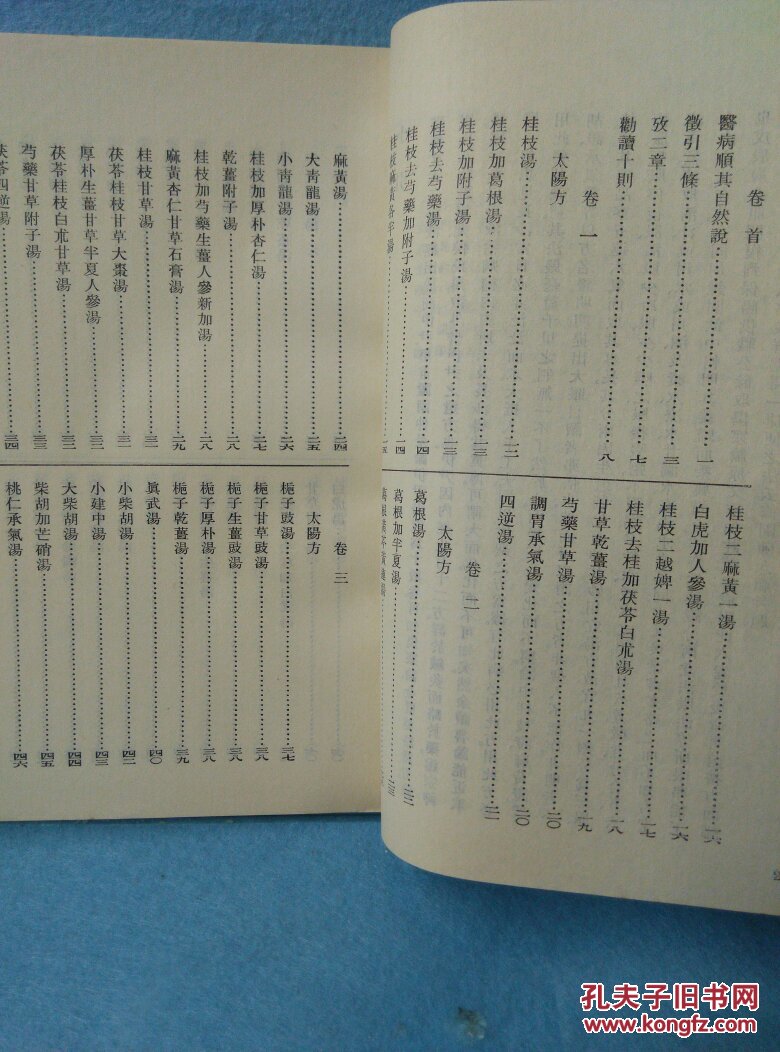 卷首
醫病順其自然說……一
徵引三條……三
攷二章……七
勸讀十則……八
卷一
太陽方
桂枝湯……一二
桂枝加葛根湯……一三
桂枝加附子湯……一三
桂枝去芍藥湯……一四
桂枝去芍藥加附子湯……一四
桂枝麻黃各半湯……一五
桂枝二麻黃一湯……一六
白虎加人參湯……一六
桂枝二越婢一湯……一七
桂枝去桂加茯苓白朮湯……一八
甘草乾薑湯……一九
芍藥甘草湯……二〇
調胃承氣湯……二〇
四逆湯……二一
卷二
太陽方
葛根湯……二二
葛根加半夏湯……二三
麻黃湯……二四
大青龍湯……二五
小青龍湯……二六
桂枝加厚朴杏仁湯……二七
乾薑附子湯……二八
桂枝加芍藥生薑人參新加湯……二八
麻黃杏仁甘草石膏湯……二九
桂枝甘草湯……三一
茯苓桂枝甘草大棗湯……三一
厚朴生薑甘草半夏人參湯……三二
茯苓桂枝白朮甘草湯……三二
芍藥甘草附子湯……三三
茯苓四逆湯……三四
卷三
太陽方
梔子豉湯……三七
梔子甘草豉湯……三八
梔子生薑豉湯……三八
梔子厚朴湯……三八
梔子乾薑湯……三九
真武湯……四〇
小柴胡湯……四二
小建中湯……四三
大柴胡湯……四四
柴胡加芒硝湯……四五
桃仁承氣湯……四六
孔夫子旧书网
www.kongfz.com